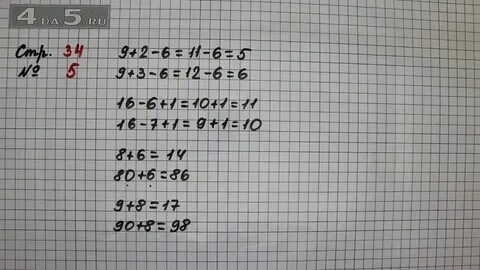 4 DA 5.RU
Стр. 34
№ 5
9+2-6=11-6=5
9+3-6=12-6=6
16-6+1=10+1=11
16-7+1=9+1=10
8+6=14
80+6=86
9+8=17
90+8=98